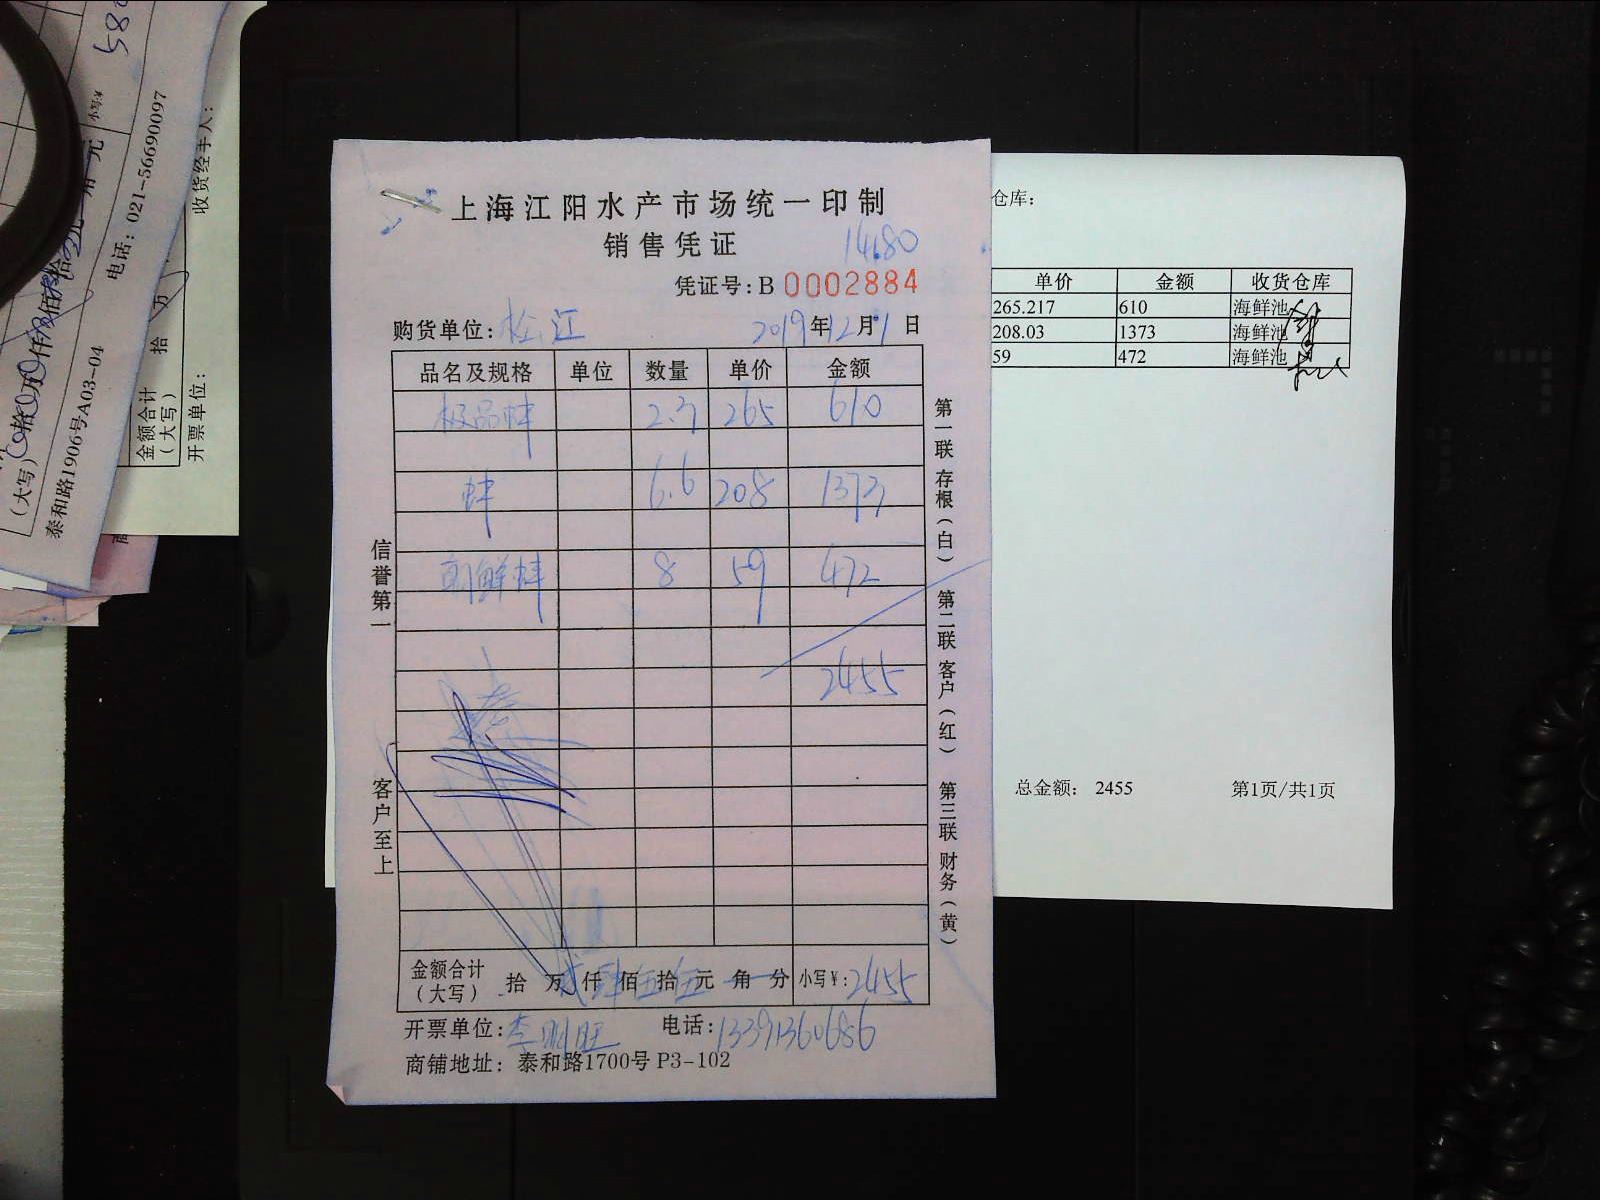 上海江阳水产市场统一印制
销售凭证
14680
凭证号:B 0002884
购货单位:松江 2019年12月1日
品名及规格 单位 数量 单价 金额
极品蚌 2.3 265 610
蚌 6.6 208 1373
朝鲜蚌 8 59 472
2455
金额合计(大写) 拾 万 贰仟肆佰伍拾伍元 角 分 小写¥:2455
开票单位:李明旺 电话:13391360686
商铺地址: 泰和路1700号 P3-102
信誉第一
客户至上
第一联 存根(白) 第二联 客户(红) 第三联 财务(黄)
仓库:
单价 金额 收货仓库
265.217 610 海鲜池
208.03 1373 海鲜池
59 472 海鲜池
总金额: 2455 第1页/共1页
580
小写¥
元
(大写)
电话: 021-56690097
泰和路1906号A03-04
收货经手人:
金额合计(大写) 拾 万
开票单位: